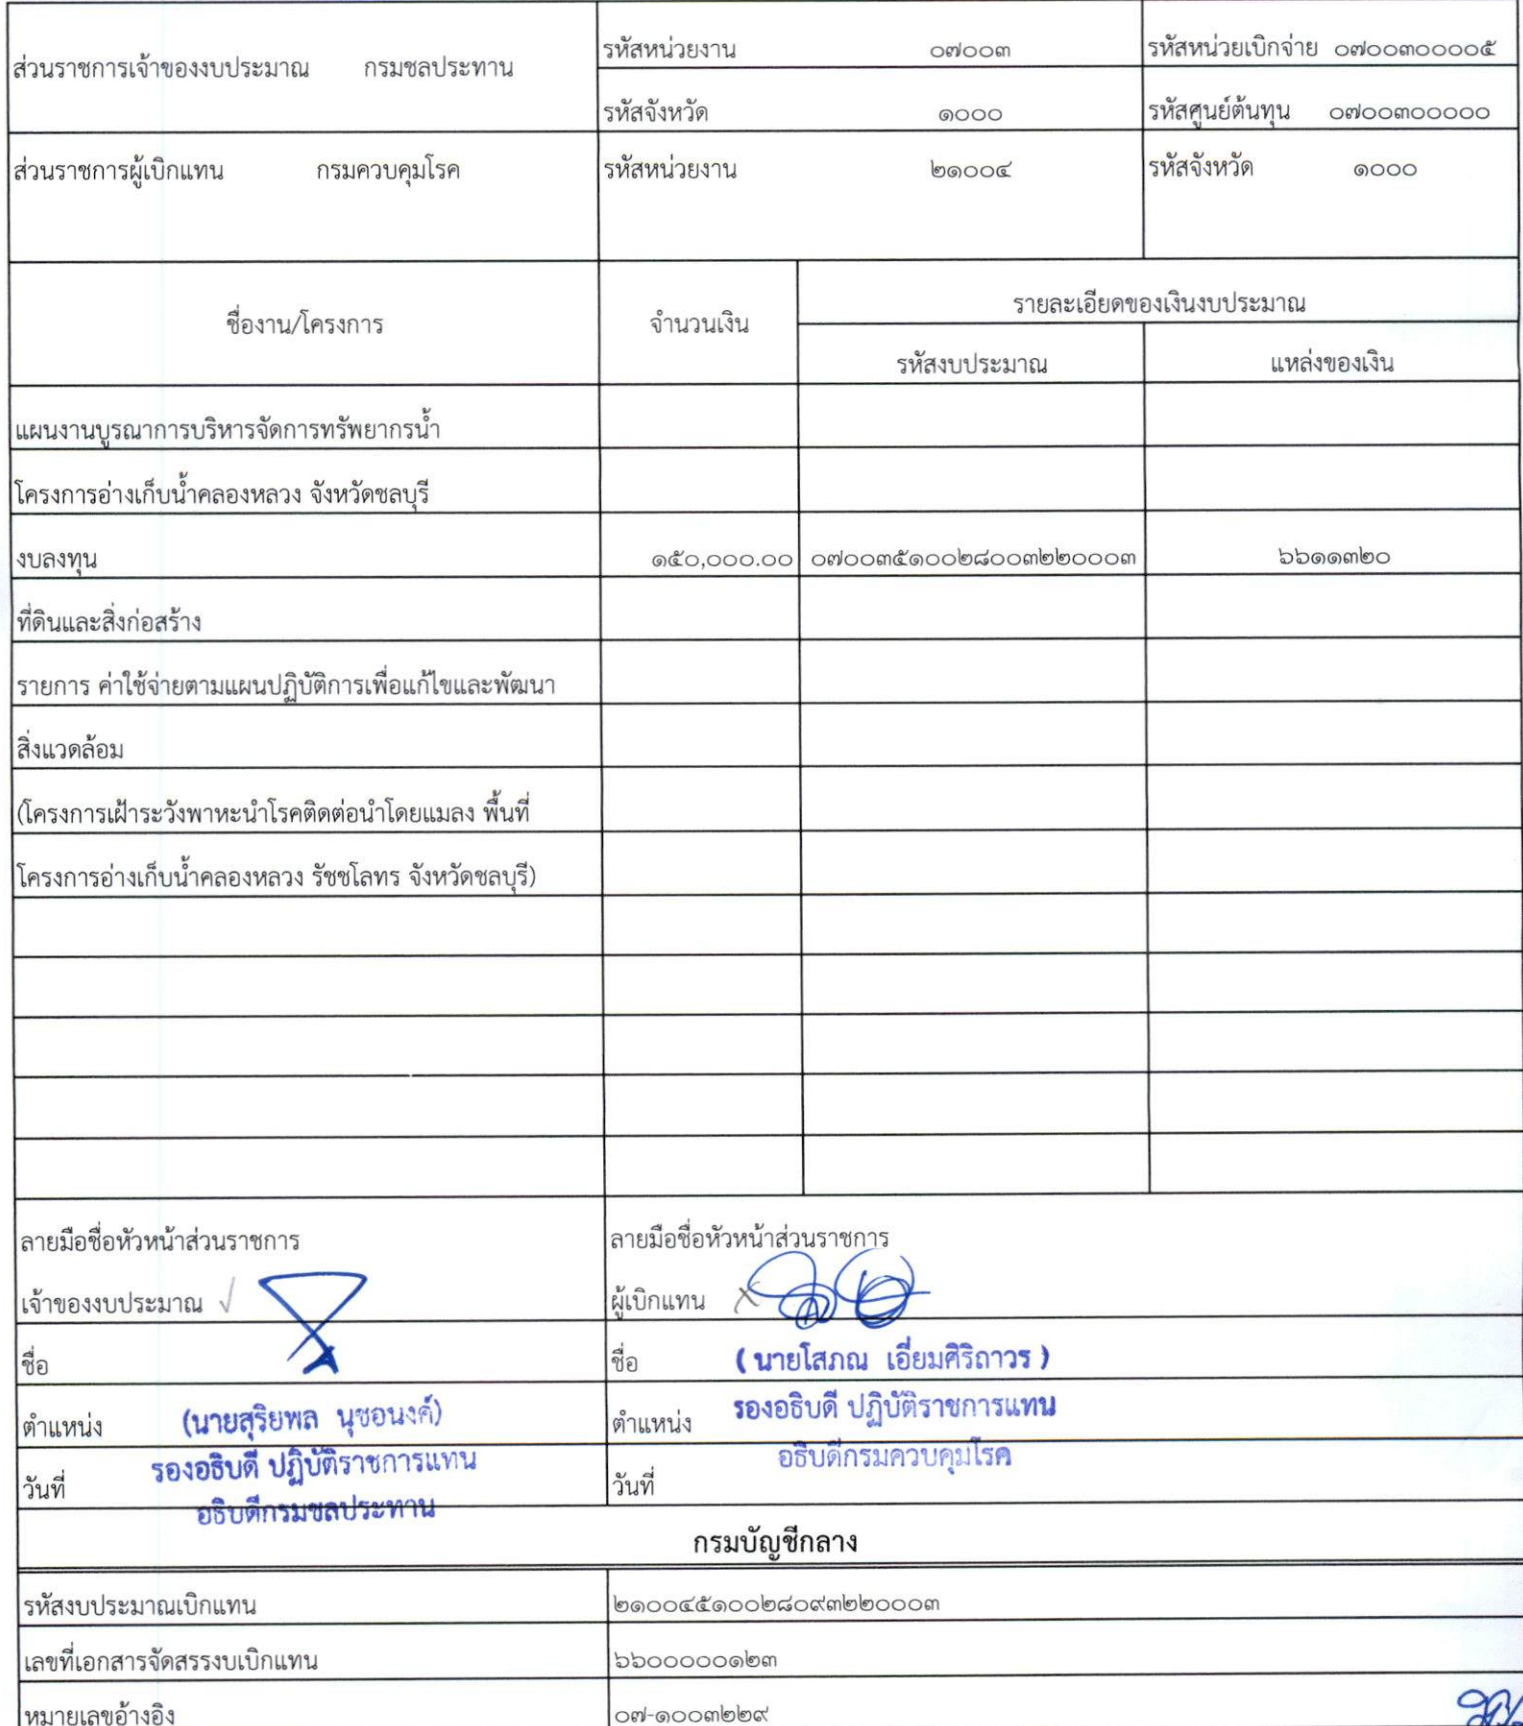 ส่วนราชการเจ้าของงบประมาณ กรมชลประทาน รหัสหน่วยงาน ๐๗๐๐๓ รหัสหน่วยเบิกจ่าย ๐๗๐๐๓๐๐๐๐๕
รหัสจังหวัด ๑๐๐๐ รหัสศูนย์ต้นทุน ๐๗๐๐๓๐๐๐๐๐
ส่วนราชการผู้เบิกแทน กรมควบคุมโรค รหัสหน่วยงาน ๒๑๐๐๔ รหัสจังหวัด ๑๐๐๐
ชื่องาน/โครงการ จำนวนเงิน รายละเอียดของเงินงบประมาณ
รหัสงบประมาณ แหล่งของเงิน
แผนงานบูรณาการบริหารจัดการทรัพยากรน้ำ
โครงการอ่างเก็บน้ำคลองหลวง จังหวัดชลบุรี
งบลงทุน ๑๕๐,๐๐๐.๐๐ ๐๗๐๐๓๕๑๐๐๒๘๐๐๓๒๒๐๐๐๓ ๖๖๑๑๓๒๐
ที่ดินและสิ่งก่อสร้าง
รายการ ค่าใช้จ่ายตามแผนปฏิบัติการเพื่อแก้ไขและพัฒนา
สิ่งแวดล้อม
(โครงการเฝ้าระวังพาหะนำโรคติดต่อนำโดยแมลง พื้นที่
โครงการอ่างเก็บน้ำคลองหลวง รัชชโลทร จังหวัดชลบุรี)
ลายมือชื่อหัวหน้าส่วนราชการ ลายมือชื่อหัวหน้าส่วนราชการ
เจ้าของงบประมาณ ผู้เบิกแทน
ชื่อ ชื่อ (นายโสภณ เอี่ยมศิริถาวร)
ตำแหน่ง (นายสุริยพล นุชอนงค์) ตำแหน่ง รองอธิบดี ปฏิบัติราชการแทน
รองอธิบดี ปฏิบัติราชการแทน อธิบดีกรมควบคุมโรค
วันที่ วันที่
อธิบดีกรมชลประทาน
กรมบัญชีกลาง
รหัสงบประมาณเบิกแทน ๒๑๐๐๔๕๑๐๐๒๘๐๙๓๒๒๐๐๐๓
เลขที่เอกสารจัดสรรงบเบิกแทน ๖๖๐๐๐๐๐๑๒๓
หมายเลขอ้างอิง ๐๗-๑๐๐๓๒๒๙